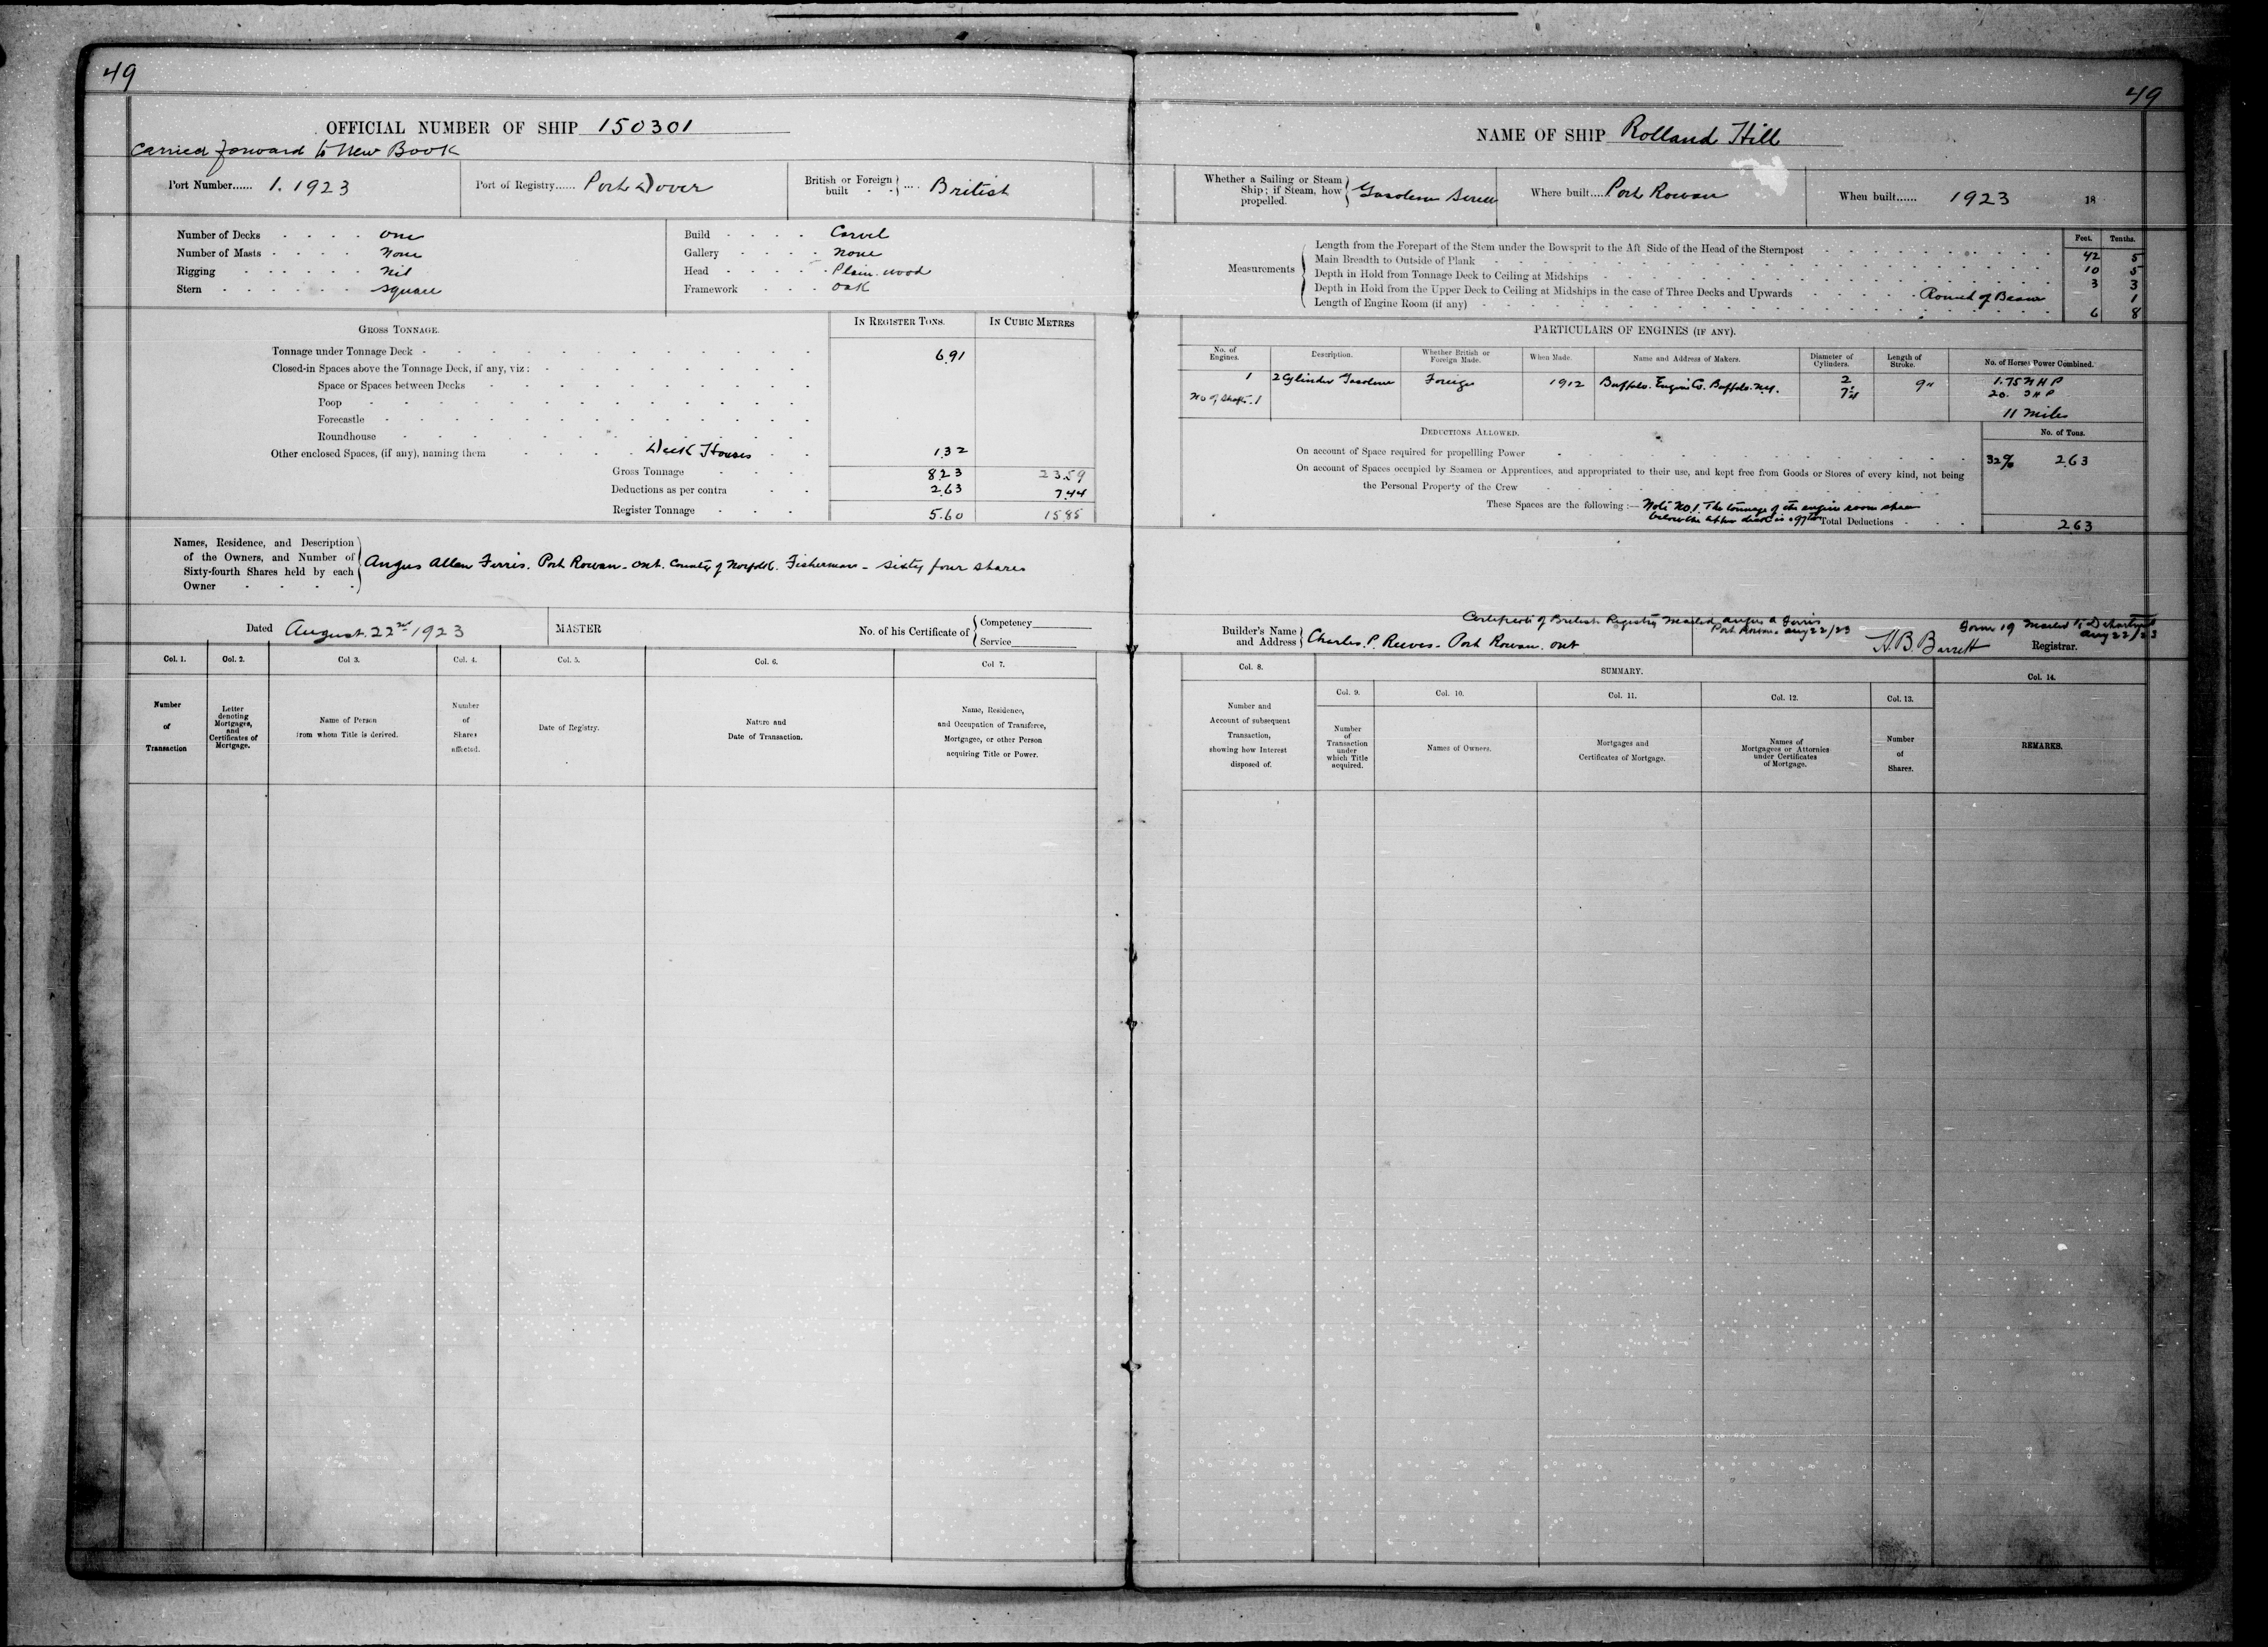 49
OFFICIAL NUMBER OF SHIP 150301
Carried forward to New Book
Port Number...... 1. 1923
Port of Registry...... Port Dover
British or Foreign built .... British
Number of Decks - - - - one
Number of Masts - - - - None
Rigging - - - - - - Nil
Stern - - - - - - square
Build - - - - Carvel
Gallery - - - - None
Head - - - - Plain. wood
Framework - - - oak
GROSS TONNAGE.
IN REGISTER TONS.
IN CUBIC METRES
Tonnage under Tonnage Deck - 6.91
Closed-in Spaces above the Tonnage Deck, if any, viz:
Space or Spaces between Decks
Poop
Forecastle
Roundhouse
Other enclosed Spaces, (if any), naming them Deck Houses 1.32
Gross Tonnage 8.23 23.59
Deductions as per contra 2.63 7.44
Register Tonnage 5.60 15.85
Names, Residence, and Description
of the Owners, and Number of
Sixty-fourth Shares held by each
Owner
Angus Allan Ferris. Port Rowan - ont. County of Norfolk. Fisherman - sixty four shares
Dated August. 22nd 1923
MASTER
No. of his Certificate of
Competency
Service
Col. 1.
Number
of
Transaction
Col. 2.
Letter
denoting
Mortgages,
and
Certificates of
Mortgage.
Col 3.
Name of Person
from whom Title is derived.
Col. 4.
Number
of
Shares
affected.
Col. 5.
Date of Registry.
Col. 6.
Nature and
Date of Transaction.
Col 7.
Name, Residence,
and Occupation of Transferee,
Mortgagee, or other Person
acquiring Title or Power.
49
NAME OF SHIP Rolland Hill
Whether a Sailing or Steam
Ship; if Steam, how
propelled.
Gasolene Screw
Where built.... Port Rowan
When built...... 1923 18
Feet. Tenths.
Measurements
Length from the Forepart of the Stem under the Bowsprit to the Aft Side of the Head of the Sternpost 42 5
Main Breadth to Outside of Plank 10 5
Depth in Hold from Tonnage Deck to Ceiling at Midships 3 3
Depth in Hold from the Upper Deck to Ceiling at Midships in the case of Three Decks and Upwards Round of Beam 1
Length of Engine Room (if any) 6 8
PARTICULARS OF ENGINES (IF ANY).
No. of
Engines.
Description.
Whether British or
Foreign Made.
When Made.
Name and Address of Makers.
Diameter of
Cylinders.
Length of
Stroke.
No. of Horses Power Combined.
1 2 Cylinder Gasolene Foreign 1912 Buffalo. Engine Co. Buffalo. N.Y. 2 9" 1.75 N H P
No of Shafts. 1
20.
11 Miles
DEDUCTIONS ALLOWED.
No. of Tons.
On account of Space required for propellling Power 32% 2.63
On account of Spaces occupied by Seamen or Apprentices, and appropriated to their use, and kept free from Goods or Stores of every kind, not being
the Personal Property of the Crew
These Spaces are the following:— Note No. 1. The tonnage of the engine room
below the deck is .97 tons
Total Deductions - - - 2.63
Certificate of British Registry Mailed Angus A Ferris
Port Rowan Aug 22/23
Form 19 Mailed to Department
Aug 22/23
Builder's Name
and Address
Charles. P. Reeves - Port Rowan. ont
H. B. Barrett
Registrar.
Col. 8.
Number and
Account of subsequent
Transaction,
showing how Interest
disposed of.
SUMMARY.
Col. 9.
Number
of
Transaction
under
which Title
acquired.
Col. 10.
Names of Owners.
Col. 11.
Mortgages and
Certificates of Mortgage.
Col. 12.
Names of
Mortgagees or Attornies
under Certificates
of Mortgage.
Col. 13.
Number
of
Shares.
Col. 14.
REMARKS.